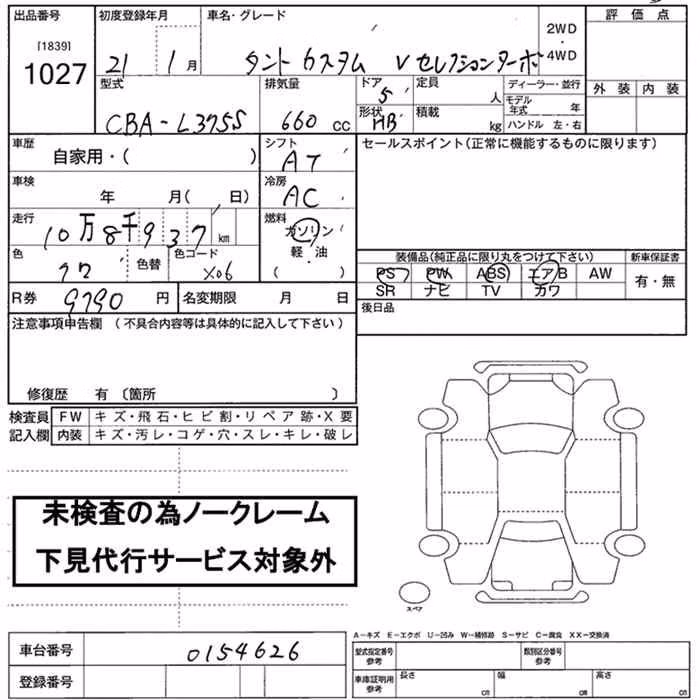 出品番号 初度登録年月 車名・グレード 評価点
[1839]
1027
21 1月 タント カスタム Vセレクションターボ
2WD
・
4WD
外装 内装
型式 排気量 ドア 定員 ディーラー・並行
CBA-L375S 660 cc 5 人
モデル年式 年
形状 積載
HB kg ハンドル 左・右
車歴 シフト セールスポイント(正常に機能するものに限ります)
自家用・( ) AT
車検 冷房
年 月( 日) AC
走行 燃料
10万8千937km ガソリン
軽・油
( )
色 色替 色コード
X06
装備品(純正品に限り丸をつけて下さい) 新車保証書
PS PW ABS エアB AW 有・無
SR ナビ TV カワ
R券 9790円 名変期限 月 日
後日品
注意事項申告欄 (不具合内容等は具体的に記入して下さい)
修復歴 有 〔箇所 〕
検査員 FW キズ・飛石・ヒビ割・リペア跡・X要
記入欄 内装 キズ・汚レ・コゲ・穴・スレ・キレ・破レ
未検査の為ノークレーム
下見代行サービス対象外
スペア
A-キズ E-エクボ U-凹み W-補修跡 S-サビ C-腐食 XX-交換済
車台番号 0154626
型式指定番号 参考 類別区分番号 参考
登録番号
車庫証明用 参考 長さ cm 幅 cm 高さ cm